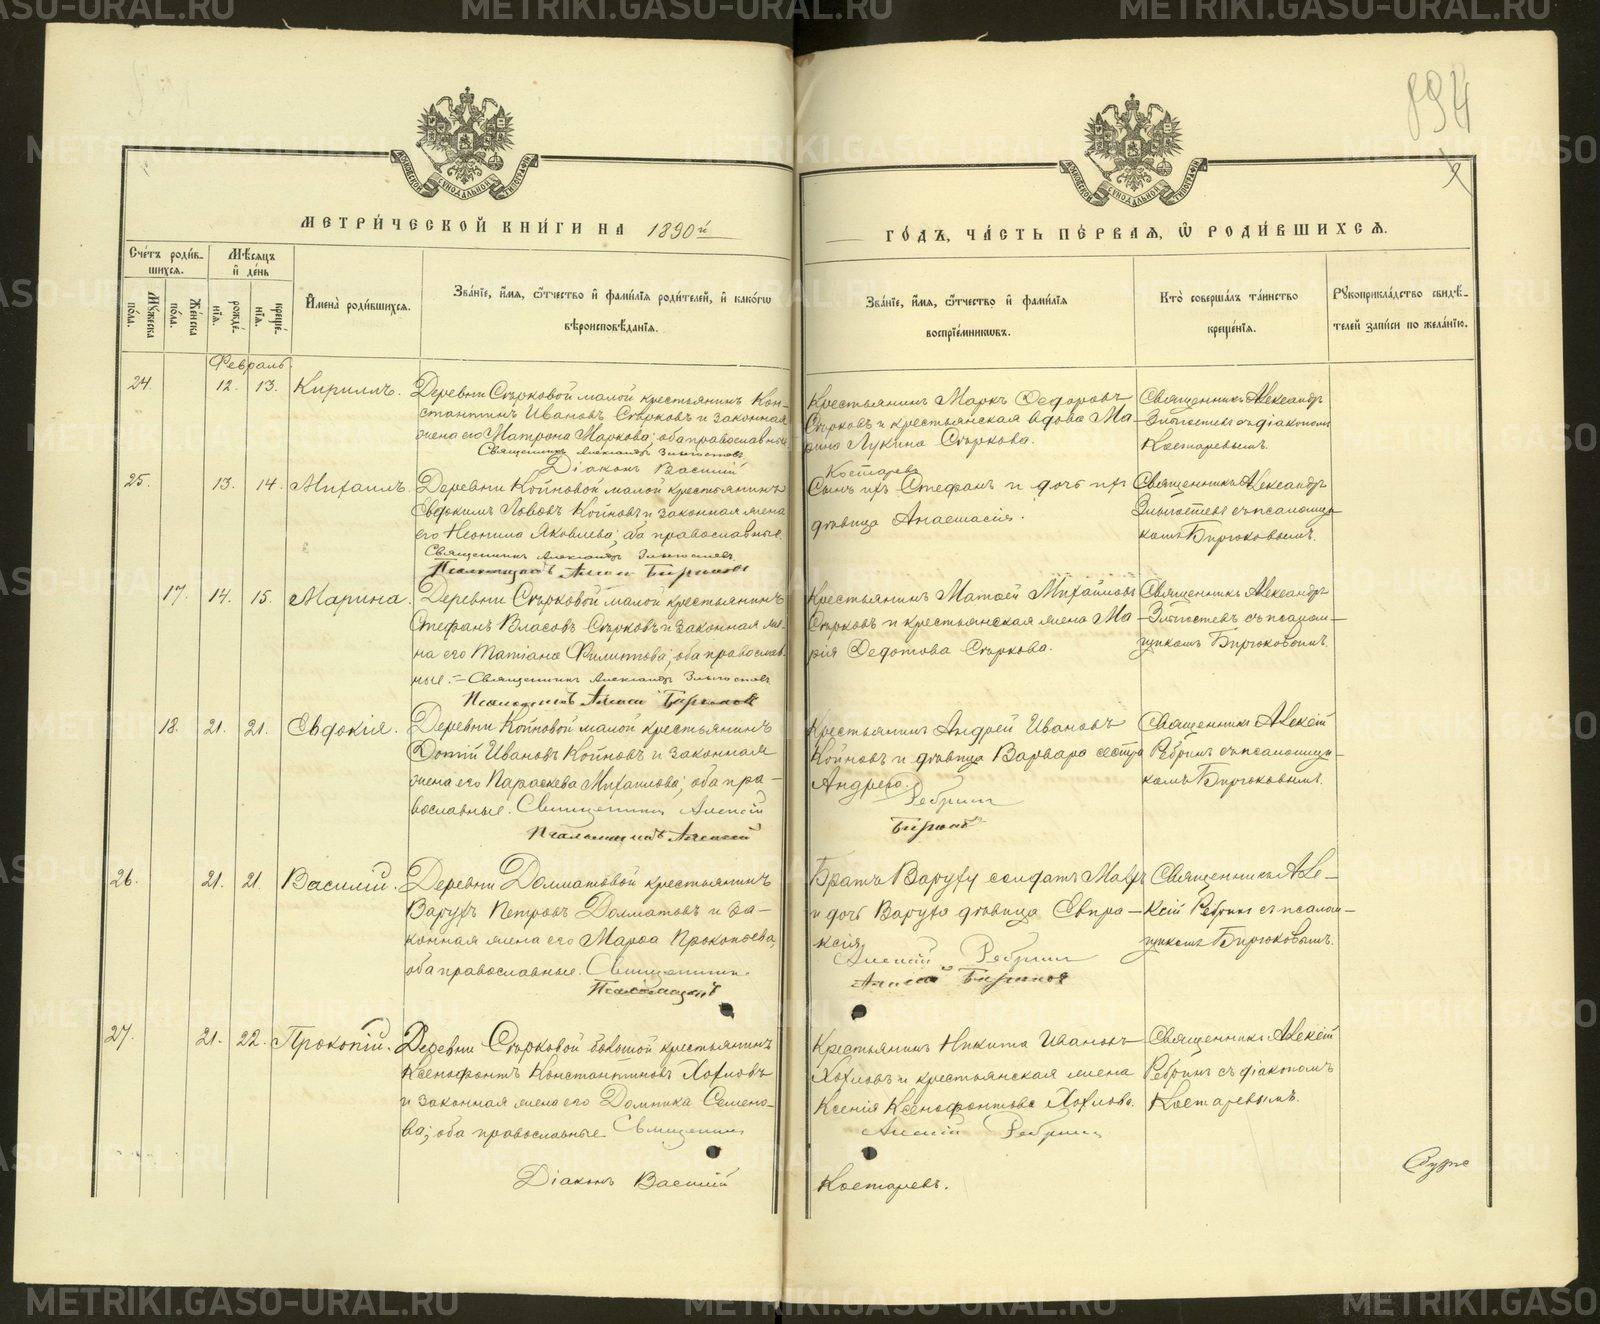 METRIKI.GASO-URAL.RU
894
МОСКОВСКОЙ СУНОДАЛЬНОЙ ТИПОГРАФІИ
МОСКОВСКОЙ СУНОДАЛЬНОЙ ТИПОГРАФІИ
МЕТРИ́ЧЕСКОЙ КНИ́ГИ НА 1890й
ГО́ДЪ, ЧА́СТЬ ПЕ́РВАѦ, Ѡ РОДИ́ВШИХСѦ.
Сче́тъ роди́вшихсѧ.
Мѣ́сѧцъ и́ де́нь
Му́жеска по́ла.
Же́нска по́ла.
рожде́нїѧ.
креще́нїѧ.
И҆мена̀ роди́вшихсѧ.
Зва́нїе, и҆́мѧ, ѻ҆́тчество и҆ фами́лїѧ роди́телей, и҆ како́гѡ
вѣроисповѣ́данїѧ.
Зва́нїе, и҆́мѧ, ѻ҆́тчество и҆ фами́лїѧ
воспрїе́мниковъ.
Кто̀ соверша́лъ та́инство
креще́нїѧ.
Рꙋкоприкла́дство свидѣ́телей за́писи по жела́нїю.
Февраль
24. 12. 13. Кириллъ.
Деревни Сѣрковой малой крестьянинъ Кон-
стантинъ Ивановъ Сѣрковъ и законная
жена его Матрона Маркова; оба православные.
Священникъ Александръ Злыгостевъ
Діаконъ Василій
Крестьянинъ Маркъ Ѳедоровъ
Сѣрковъ и крестьянская вдова Ма-
рина Лукина Сѣркова.
Костаревъ
Священникъ Александръ
Злыгостевъ съ діакономъ
Костаревымъ.
25. 13. 14. Михаилъ.
Деревни Койновой малой крестьянинъ
Евдокимъ Іововъ Койновъ и законная жена
его Неонила Яковлева; оба православные.
Священникъ Александръ Злыгостевъ
Псаломщикъ Алексій Бирюковъ
Сынъ ихъ Стефанъ и дочь ихъ
дѣвица Анастасія.
Священникъ Александръ
Злыгостевъ съ псаломщи-
комъ Бирюковымъ.
17. 14. 15. Марина.
Деревни Сѣрковой малой крестьянинъ
Стефанъ Власовъ Сѣрковъ и законная же-
на его Татіана Филиппова; оба православ-
ные. Священникъ Александръ Злыгостевъ
Псаломщикъ Алексій Бирюковъ
Крестьянинъ Матѳей Михайловъ
Сѣрковъ и крестьянская жена Ма-
рія Ѳедотова Сѣркова.
Священникъ Александръ
Злыгостевъ съ псалом-
щикомъ Бирюковымъ.
18. 21. 21. Евдокія.
Деревни Койновой малой крестьянинъ
Ивановъ Койновъ и законная
жена его Параскева Михаилова; оба пра-
вославные. Священникъ Алексій
Псаломщикъ Алексій
Крестьянинъ Андрей Ивановъ
Койновъ и дѣвица Варвара сестра
Андрею.
Ребринъ
Бирюковъ
Священникъ Алексій
Ребринъ съ псаломщи-
комъ Бирюковымъ.
26. 21. 21. Василій.
Деревни Долматовой крестьянинъ
Варухъ Петровъ Долматовъ и за-
конная жена его Марѳа Прокопьева,
оба православные. Священникъ
Псаломщикъ
Братъ Варуху солдатъ Мавръ
и дочь Варуха дѣвица Евпра-
ксія.
Алексій Ребринъ
Алексій Бирюковъ
Священникъ Але-
ксій Ребринъ съ псалом-
щикомъ Бирюковымъ.
27. 21. 22. Прокопій.
Деревни Сѣрковой большой крестьянинъ
Ксенофонтъ Константиновъ Хохловъ
и законная жена его Домника Семено-
ва; оба православные. Священникъ
Діаконъ Василій
Крестьянинъ Никита Ивановъ
Хохловъ и крестьянская жена
Ксенія Ксенофонтова Хохлова.
Алексій Ребринъ
Костаревъ.
Священникъ Алексій
Ребринъ съ діакономъ
Костаревымъ.